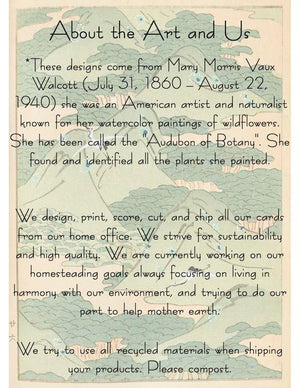 About the Art and Us
*These designs come from Mary Morris Vaux
Walcott (July 31, 1860 – August 22,
1940) she was an American artist and naturalist
known for her watercolor paintings of wildflowers.
She has been called the "Audubon of Botany". She
found and identified all the plants she painted.
We design, print, score, cut, and ship all our cards
from our home office. We strive for sustainability
and high quality. We are currently working on our
homesteading goals always focusing on living in
harmony with our environment, and trying to do our
part to help mother earth.
We try to use all recycled materials when shipping
your products. Please compost.